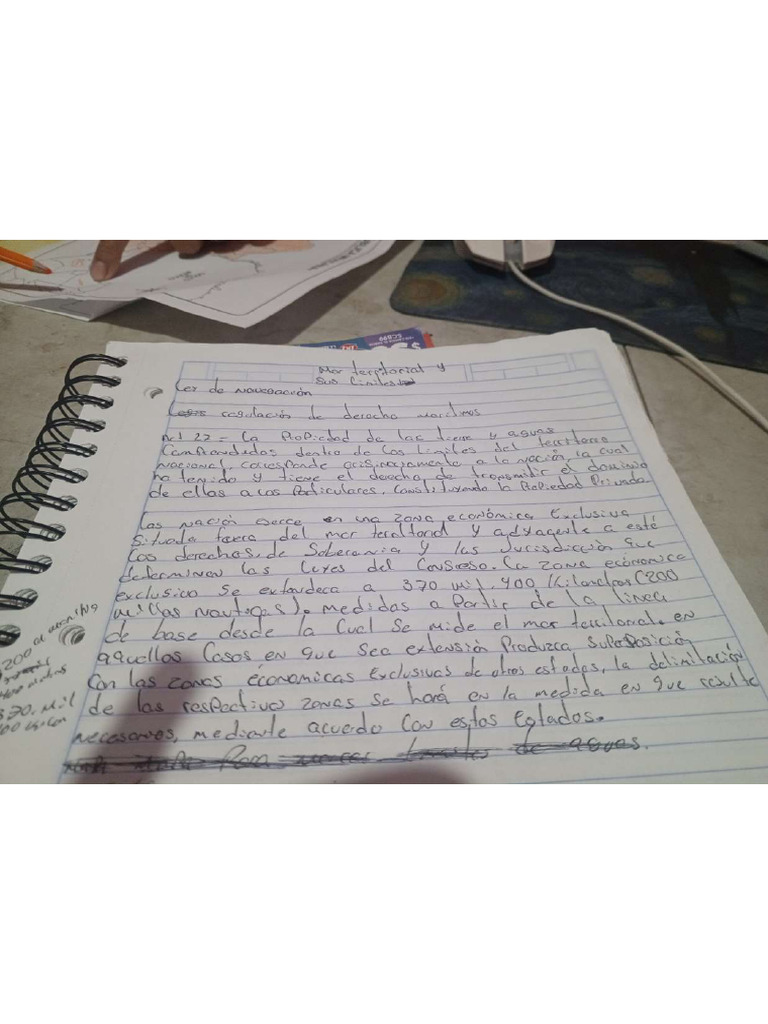 Mar territorial y
Sus limites
Ley de navegación
regulación de derecho maritimos
Art 27 = La Propiedad de las tierra y aguas
Comprandidas dentro de los limites del territorio
nacional, corresponde originariamente a la nación, la cual
ha tenido y tiene el derecho de transmitir el dominio
de ellos a los Particulares, Constituyendo la Propiedad Privada.
Las nación eserce en una zona económica Exclusiva
Situada fuera del mar territorial y adyacente a esté
Los derechos de Soberania y las Jurisdicción que
determinen las Leyes del Congreso. La zona económica
exclusico se extendera a 370 mil, 400 Kilometros (200
millas nautigas). medidas a Partir de la linea
de base desde la Cual Se mide el mar territorial. en
aquellos Casos en que Sea extensión Produzca, Superposición
Con las zonas économicas Exclusivas de otros estados, la delimitación
de las respectivo zonas Se hará en la medida en que resulte
necesarios, mediante acuerdo Con estos Estados.
Para de aguas.
200
370. Mil